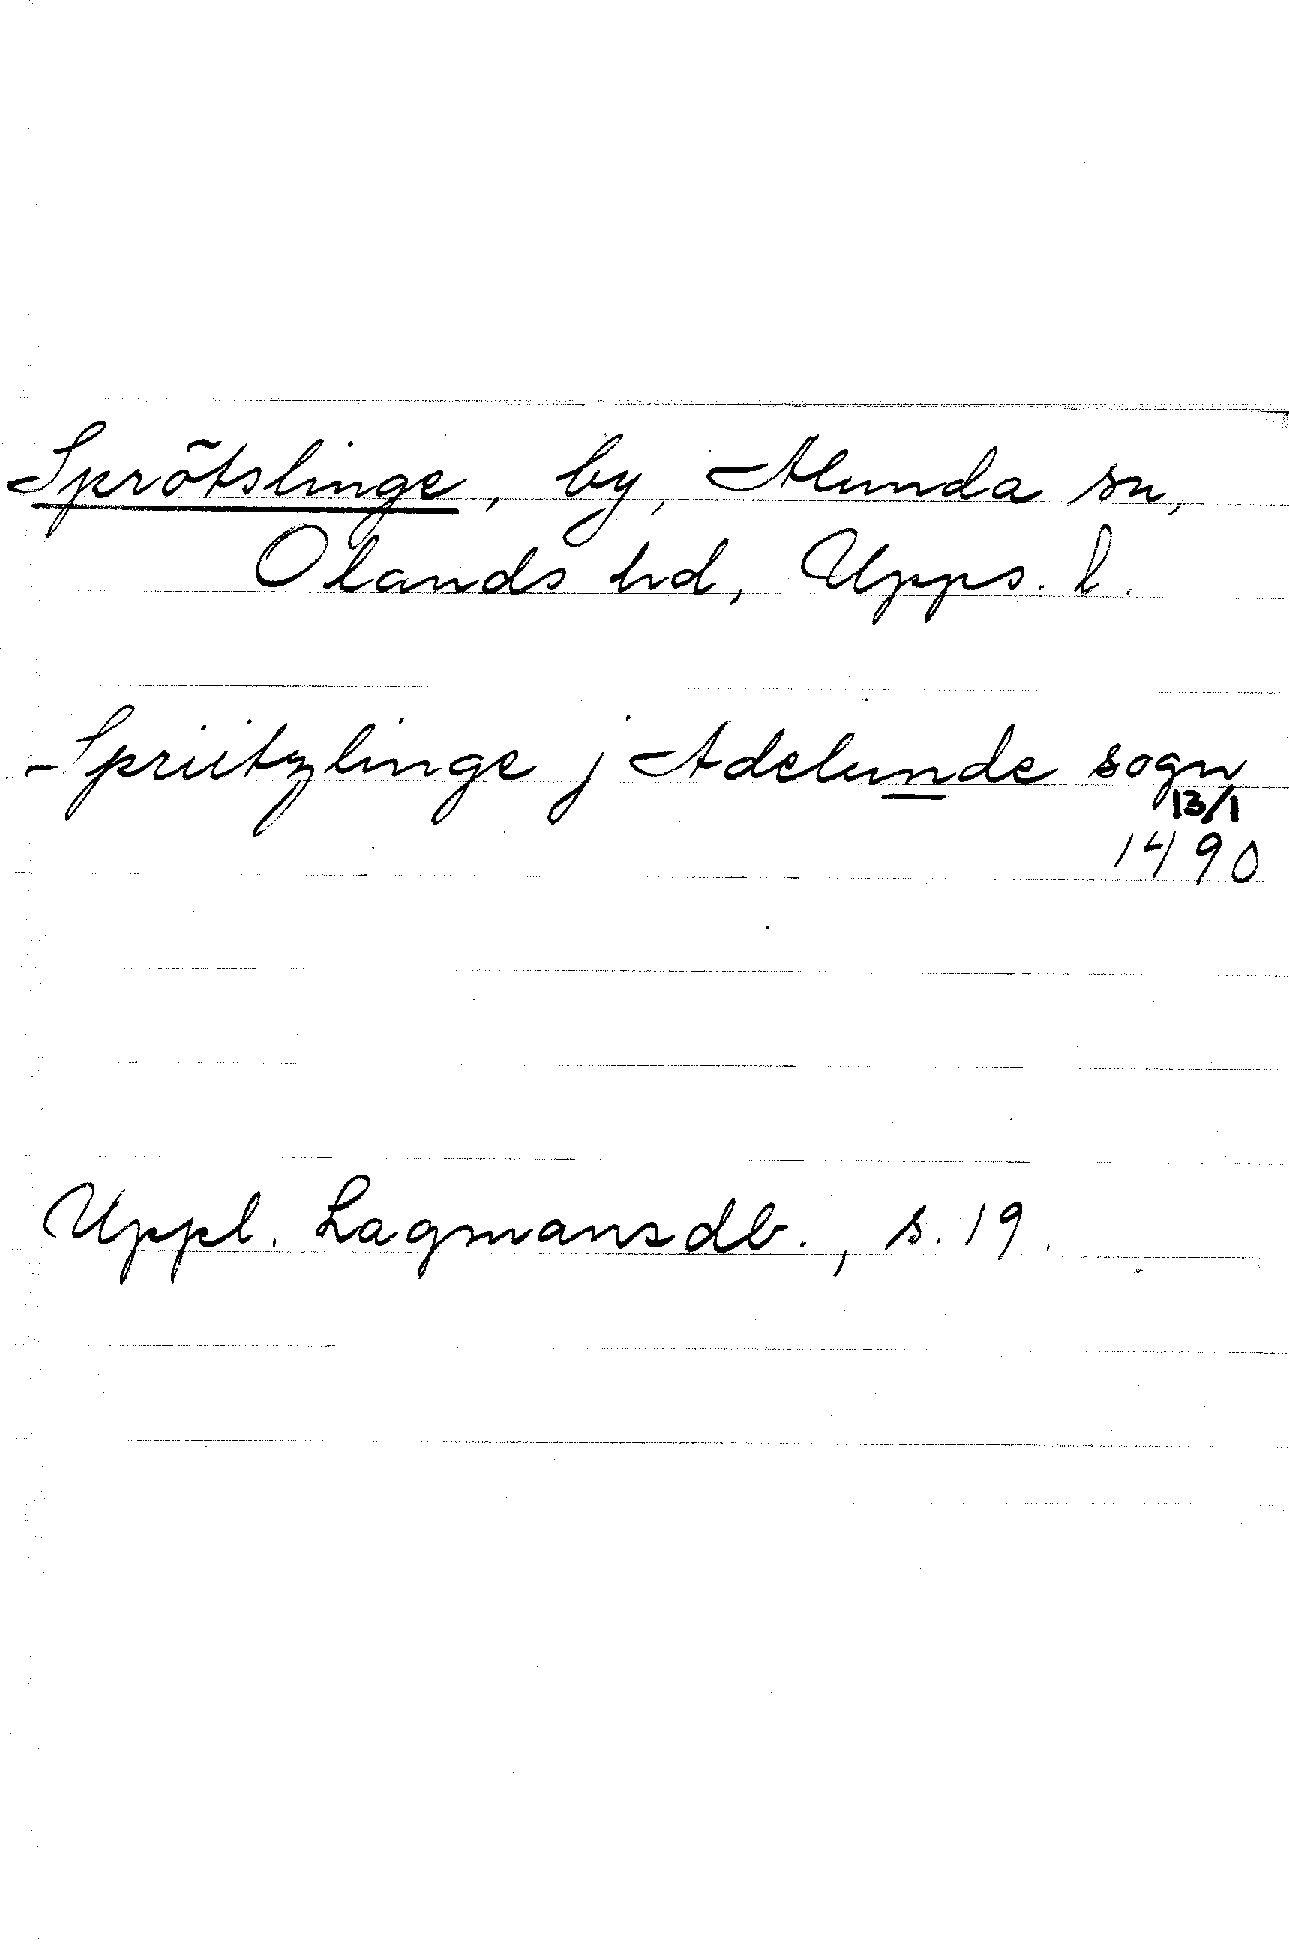 Sprötslinge, by, Alunda sn,
Olands hd, Upps. l.
Spriitzlinge j Adelunde sogn
13/1
1490
Uppl. Lagmansdb., s. 19.